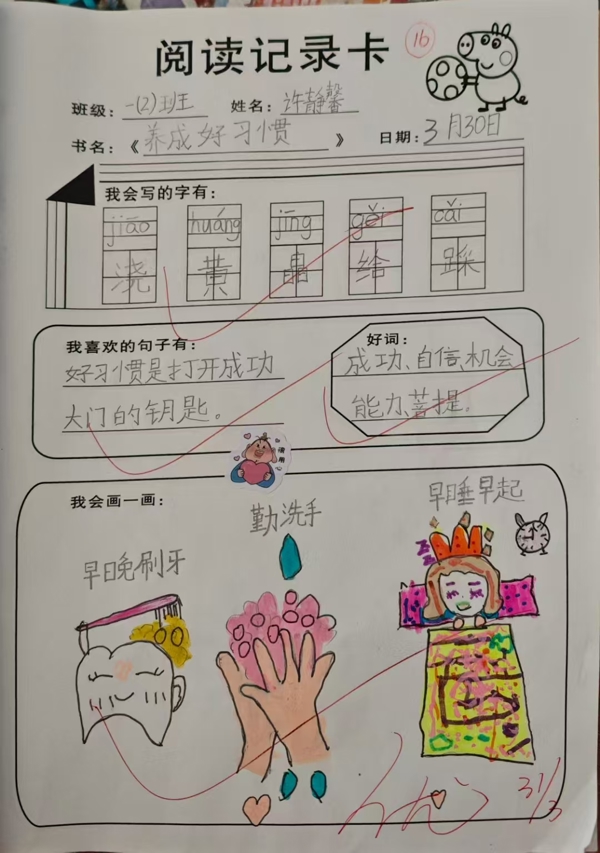 阅读记录卡 16
班级：一(2)班 姓名：许静馨
书名：《养成好习惯》 日期：3月30日
我会写的字有：
jiāo huáng jīng gěi cǎi
浇 黄 晶 给 踩
我喜欢的句子有：
好习惯是打开成功
大门的钥匙。
好词：
成功、自信、机会
能力、菩提。
我会画一画：
早日晚刷牙
勤洗手
早睡早起
31/3